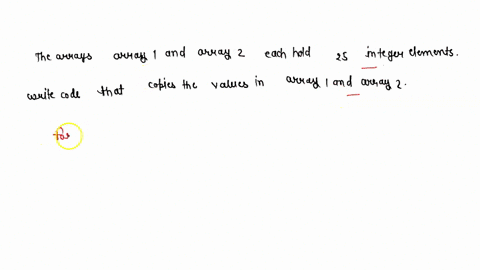 The arrays array 1 and array 2 each hold 25 integer elements.
write code that copies the values in array 1 and array 2.
for